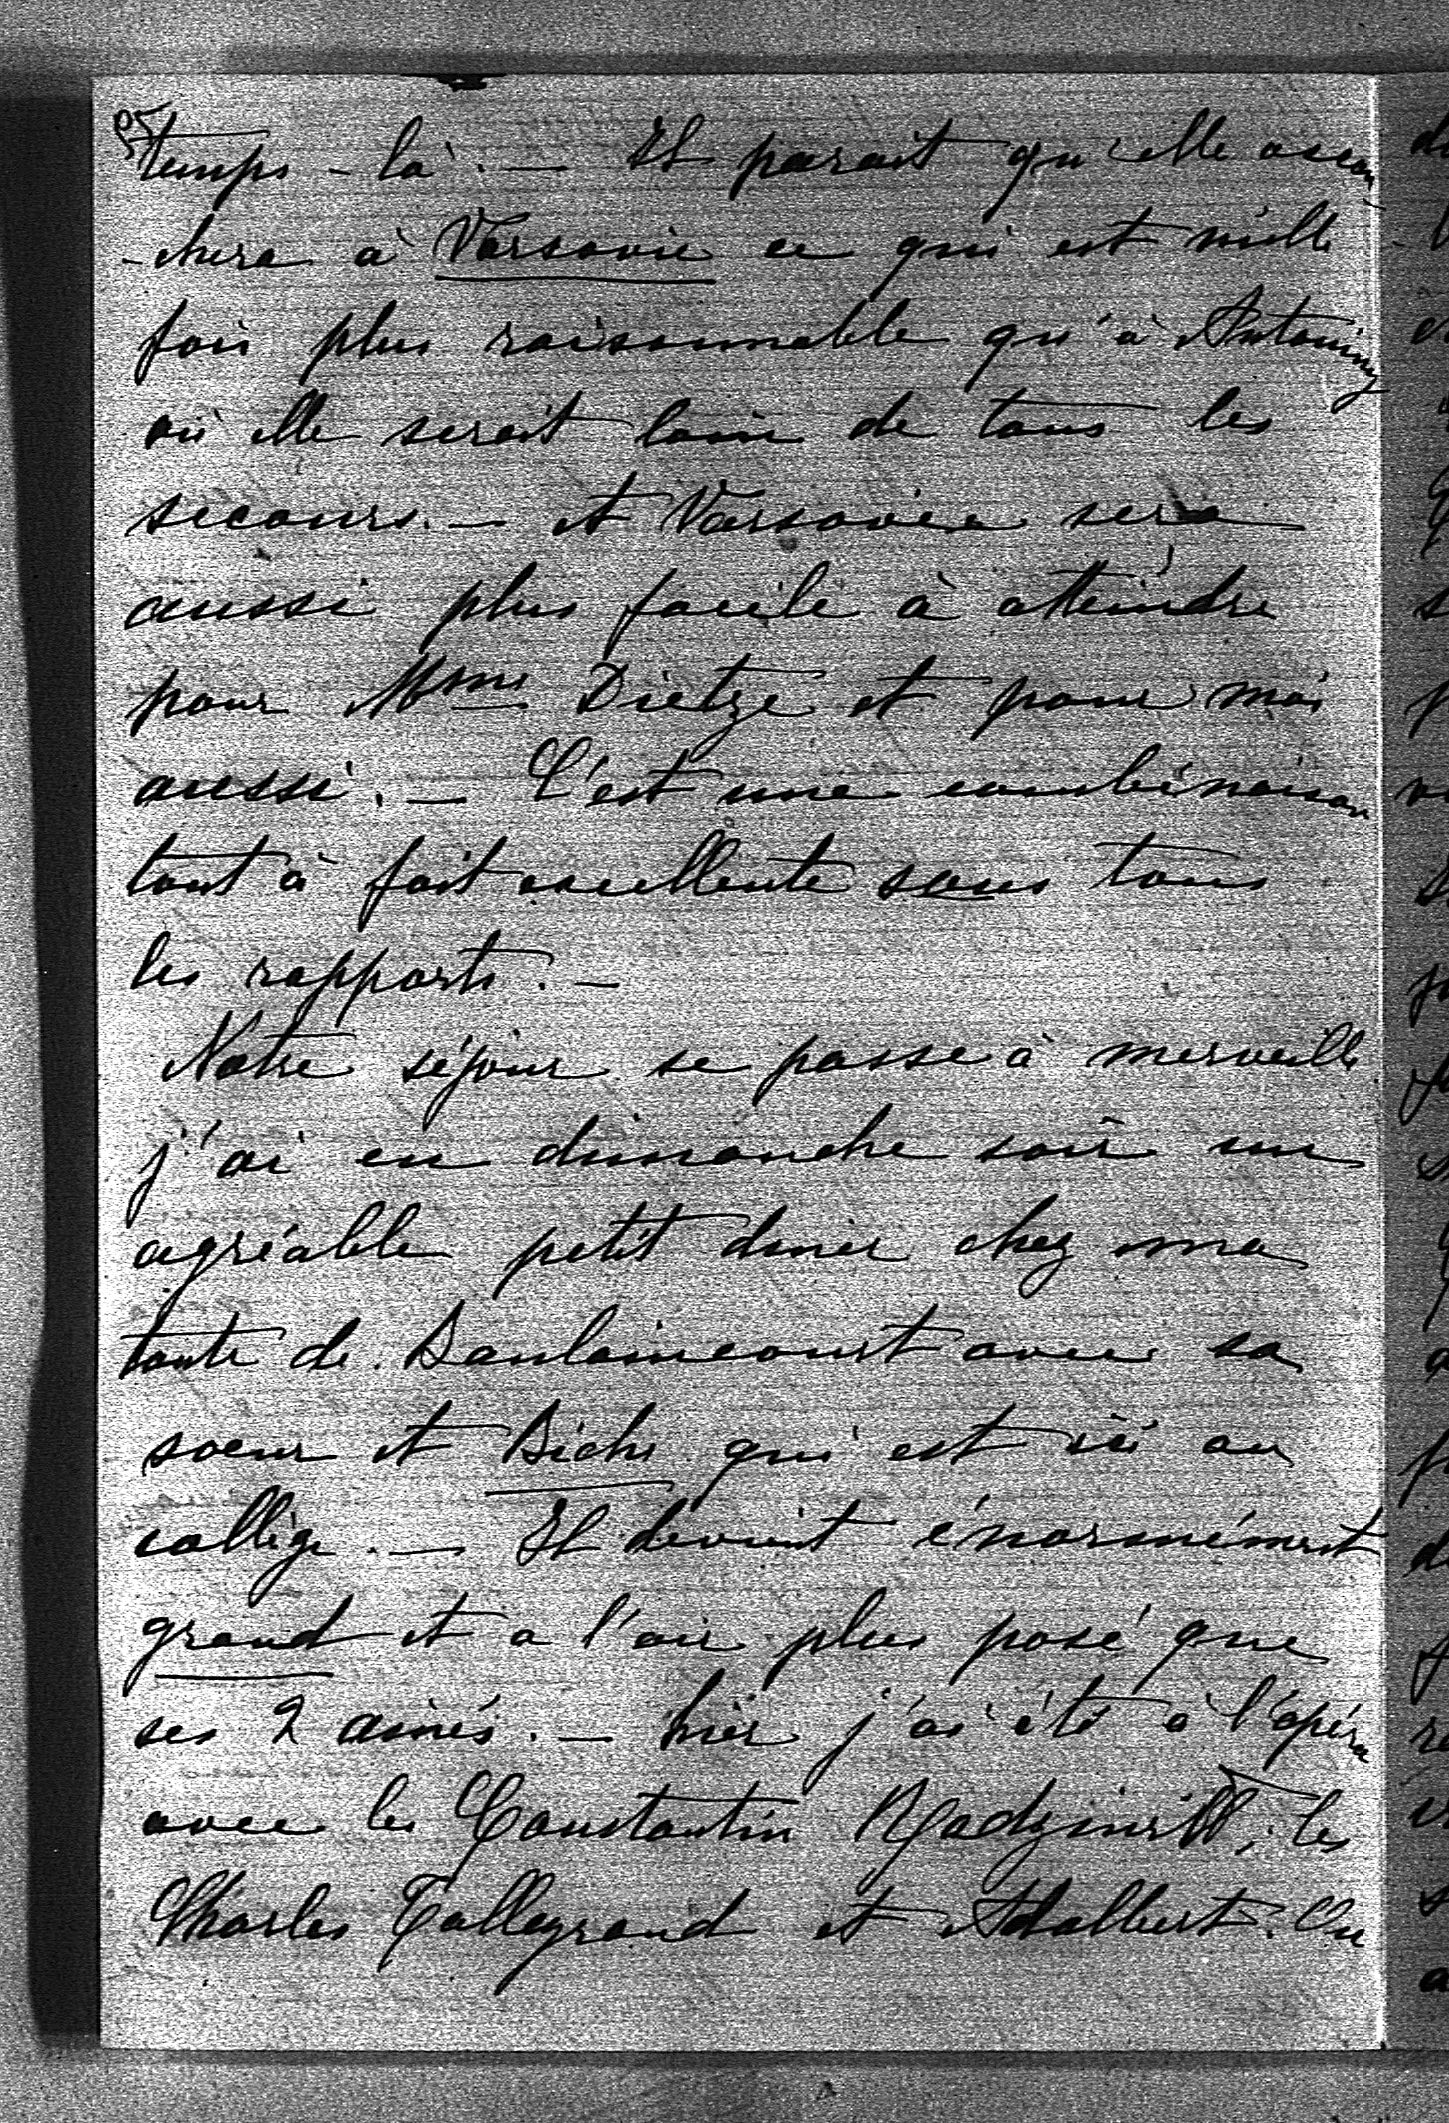 temps-là. — Il parait qu'elle accou
-chera à Varsovie ce qui est mille
fois plus raisonnable qu'à Antoniny
où elle serait loin de tous les
secours. — et Varsovie sera
aussi plus facile à atteindre
pour Mme Dietze et pour moi
aussi. — C'est une combinaison
tout à fait excellente sous tous
les rapports. —
Notre séjour se passe à merveille.
j'ai eu dimanche soir un
agréable petit diner chez ma
tante de Caulaincourt avec sa
soeur et Biche qui est ici au
collège. — Il devient énormément
grand et a l'air plus posé que
ses 2 ainés. — hier j'ai été à l'opéra
avec les Constantin Radziwill, les
Charles Talleyrand et Adalbert. On